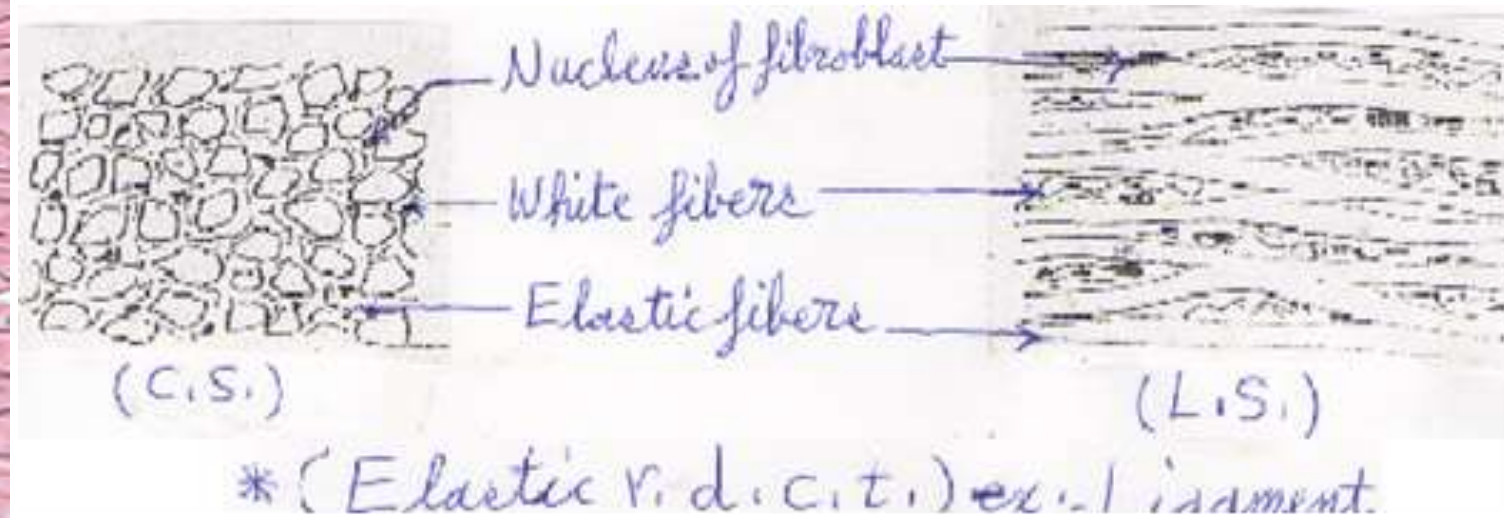 Nucleus of fibroblast
White fibers
Elastic fibers
(C.S.)
(L.S.)
* (Elastic r.d.c.t.) ex.. Ligament.